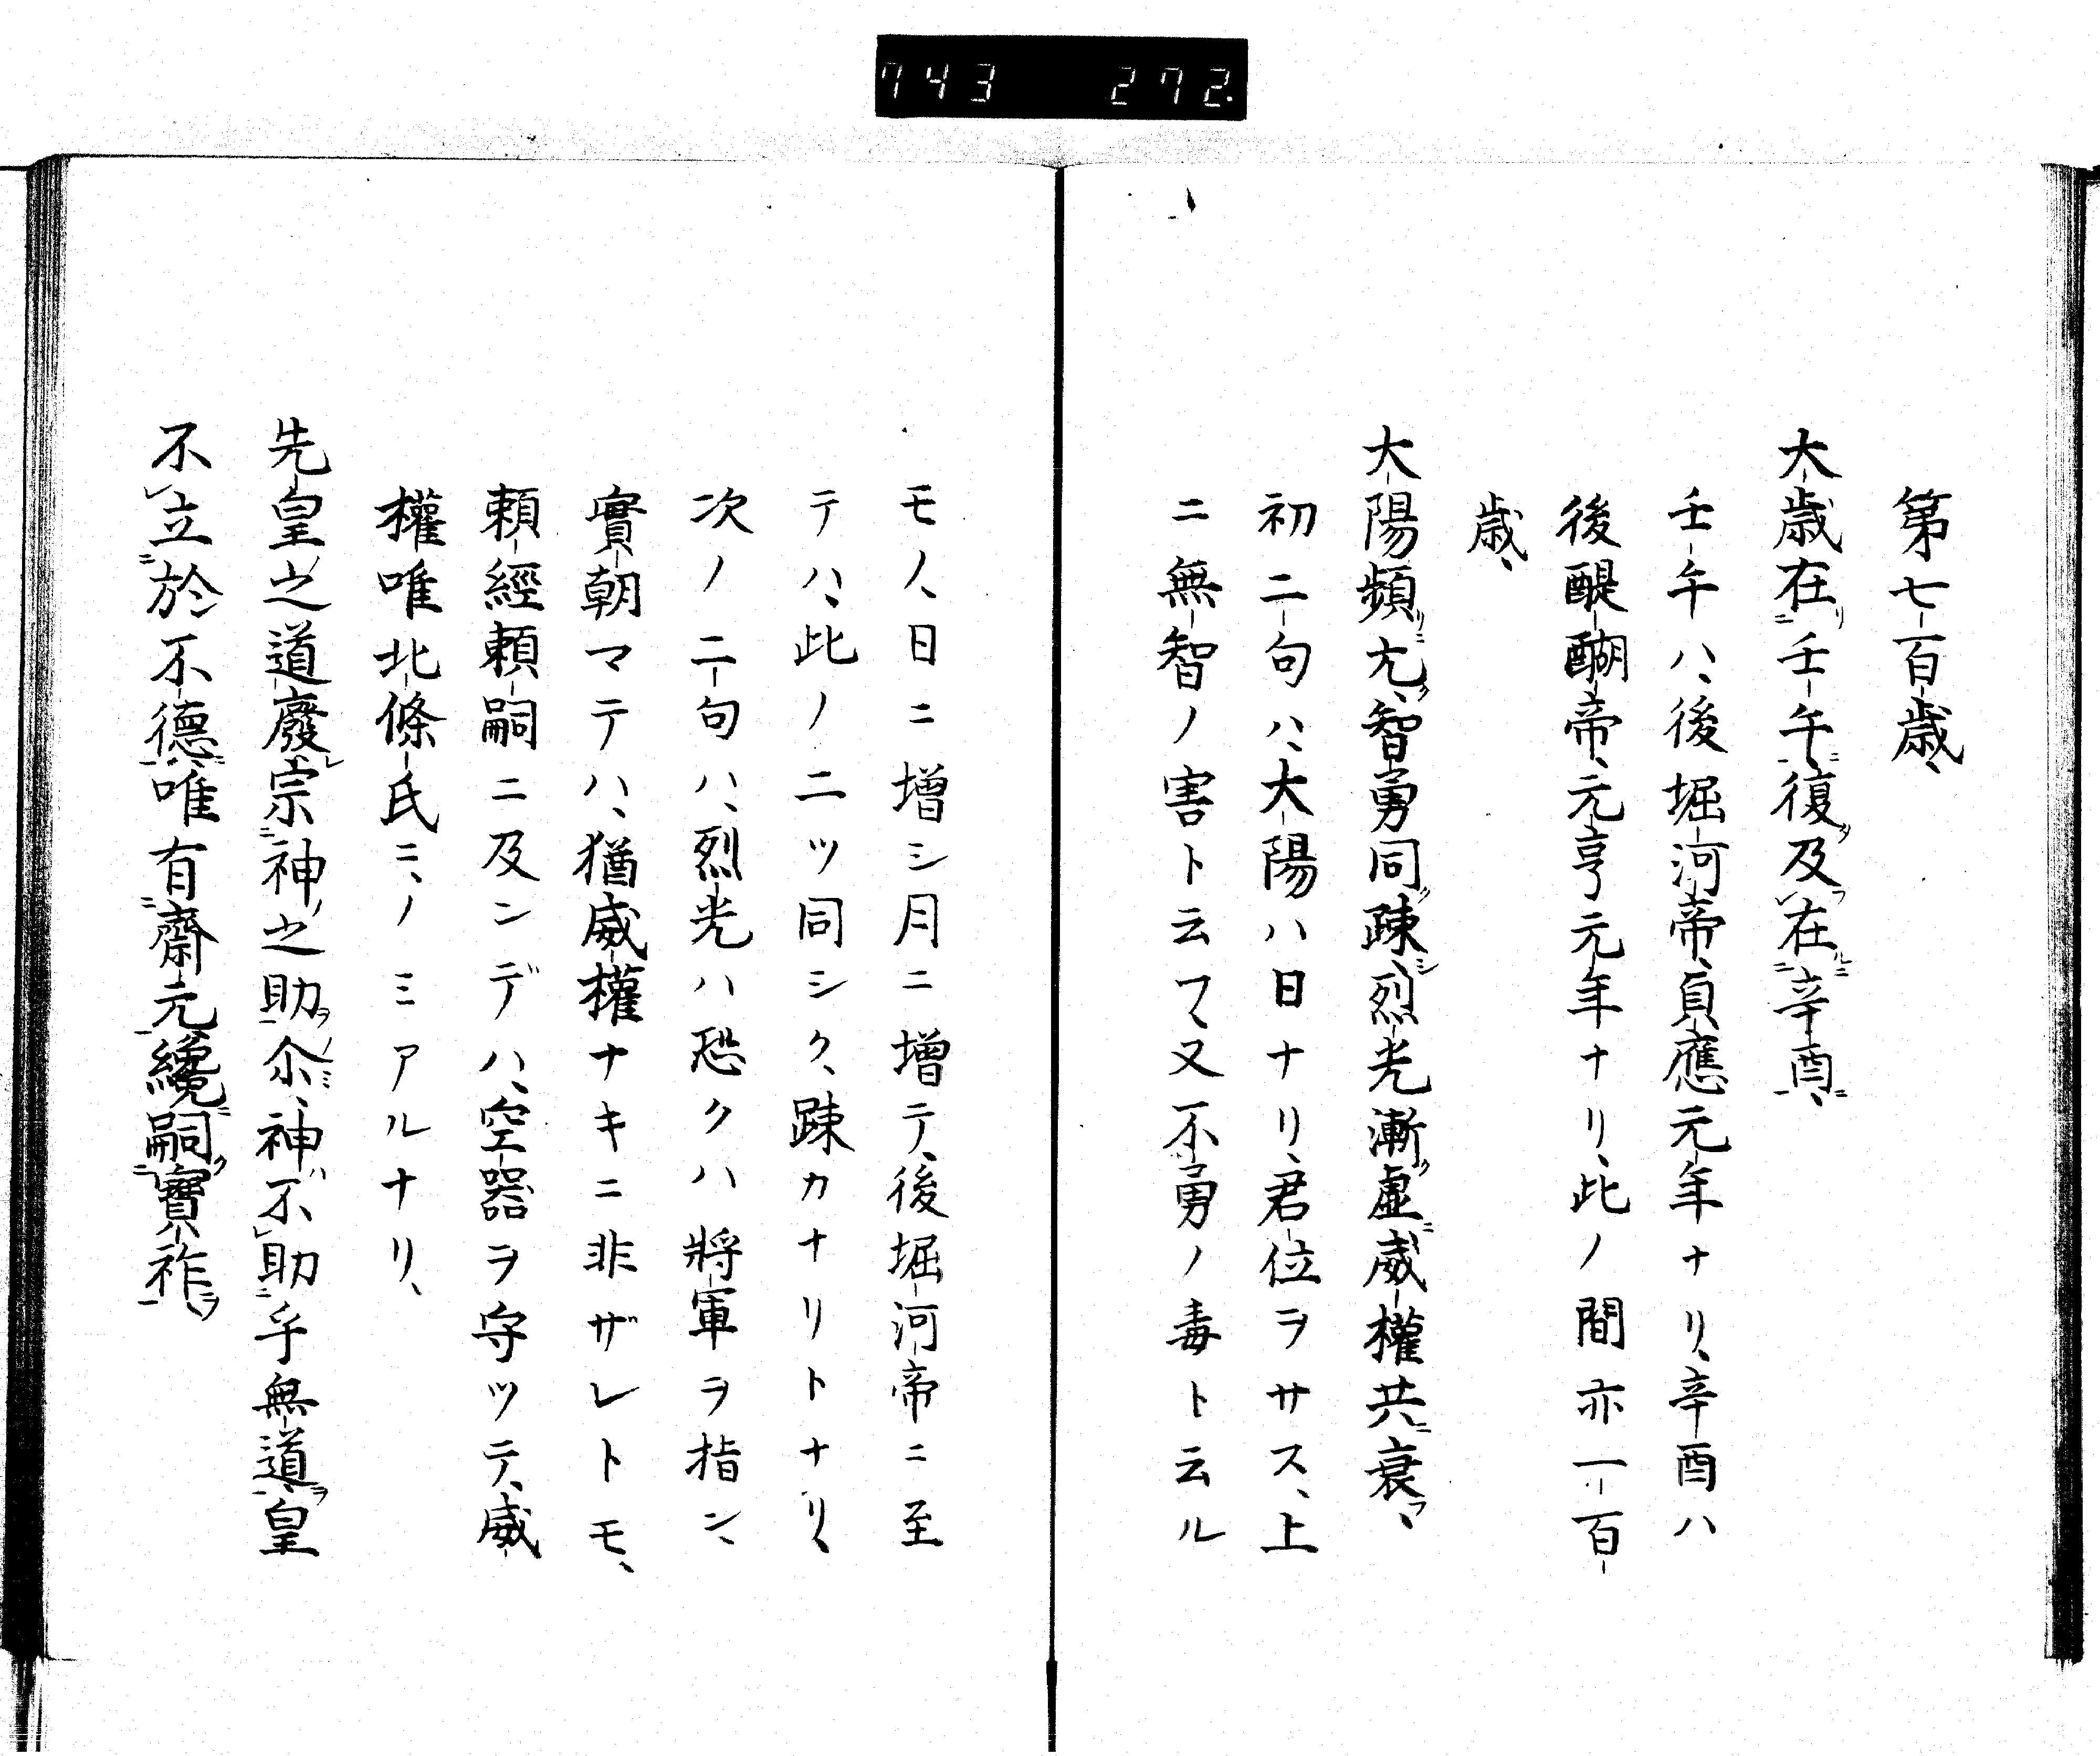 743 272.
第七百歳、
大歳在壬午、復及在辛酉、
壬午ハ、後堀河帝、貞應元年ナリ、辛酉ハ
後醍醐帝、元亨元年ナリ、此ノ間亦一百
歳、
大陽頻亢、智勇同踈、烈光漸虛、威權共衰、
初二句ハ、大陽ハ日ナリ、君位ヲサス、上
ニ無智ノ害ト云フ、又不勇ノ毒ト云ル
モノ、日ニ増シ月ニ増テ、後堀河帝ニ至
テハ、此ノ二ツ同シク、踈カナリトナリ、
次ノ二句ハ、烈光ハ恐クハ將軍ヲ指ン、
實朝マテハ、猶威權ナキニ非ザレトモ、
頼經頼嗣ニ及ンデハ、空器ヲ守ツテ、威
權唯北條氏ニ、ノミアルナリ、
先皇之道廢、宗神之助尒、神不助乎無道、皇
不立於不德、唯有齋元纔嗣寶祚、